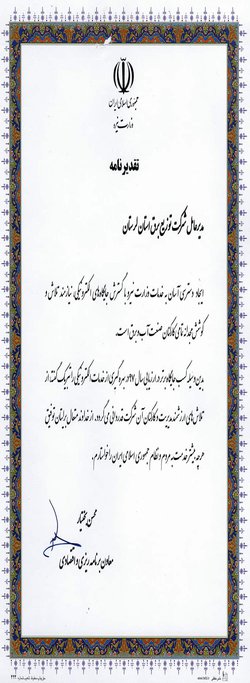 جمهوری اسلامی ایران
وزارت نیرو
تقدیرنامه
مدیرعامل شرکت توزیع برق استان لرستان
ایجاد دسترسی آسان به خدمات وزارت نیرو با گسترش جایگاه‌های الکترونیکی نیازمند تلاش و
کوشش همه‌جانبه کارکنان صنعت آب و برق است.
بدین وسیله کسب جایگاه برتر در ارزیابی سال بهره‌گیری از خدمات الکترونیکی را تبریک گفته، از
تلاش‌های ارزشمند مدیریت و کارکنان آن شرکت قدردانی می‌گردد. از خداوند متعال برایتان توفیق
هرچه بیشتر خدمت به مردم و نظام جمهوری اسلامی ایران را خواستارم.
محسن بختیار
معاون برنامه‌ریزی و اقتصادی